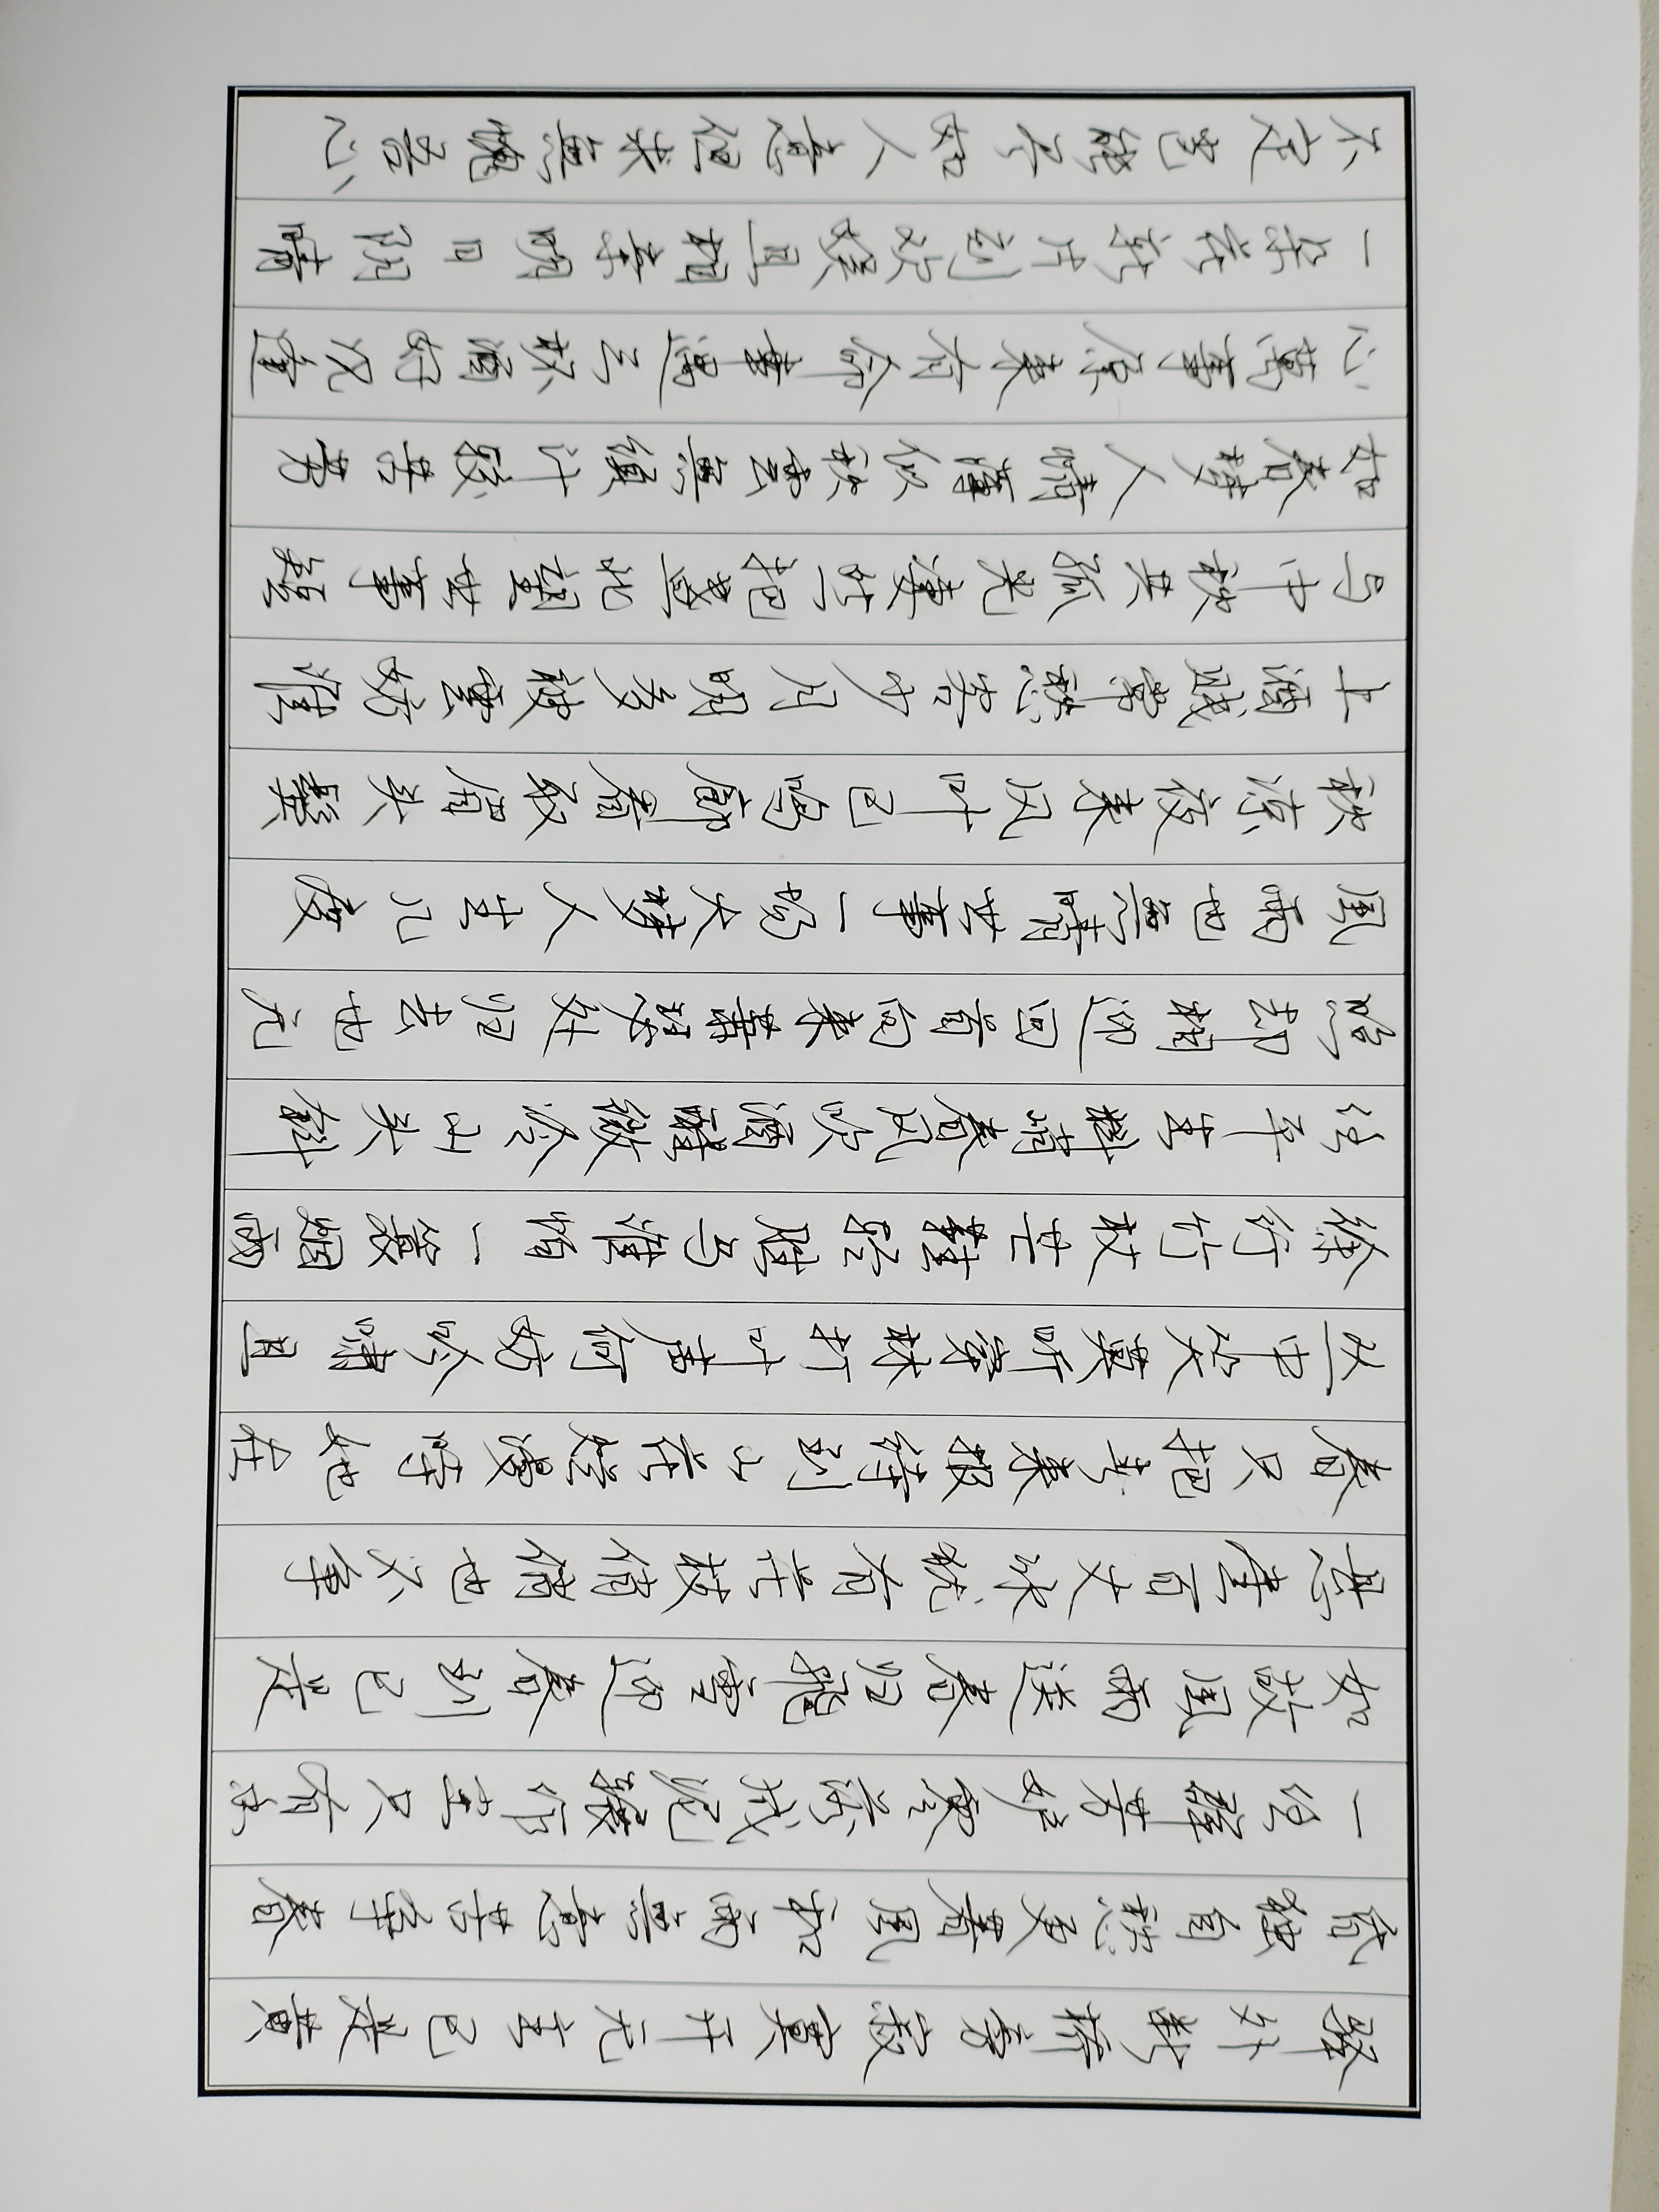 驿外断桥旁寂寞开无主已是黄
昏独自愁更著風和雨無意苦争春
一任群芳妒零落成泥碾作尘只有香
如故風雨送春归飛雪迎春到已是
悬崖百丈冰犹有花枝俏俏也不争
春只把春来报待到山花烂漫时她在
丛中笑莫听穿林打叶声何妨吟啸且
徐行竹杖芒鞋轻胜马谁怕一蓑烟雨
任平生料峭春风吹酒醒微冷山头斜
照却相迎回首向来萧瑟处归去也无
風雨也無晴世事一场大梦人生几度
秋凉夜来风叶已鸣廊看取眉头鬓
上酒贱常愁客少月明多被雲妨谁
与中秋共孤光凄然把盏北望世事短
如春梦人情薄似秋雲無須计較苦劳
心萬事原来有命幸遇三杯酒好况逢
一朵花新片时欢笑且相亲明日阴晴
不定岂能尽如人意但求無愧吾心